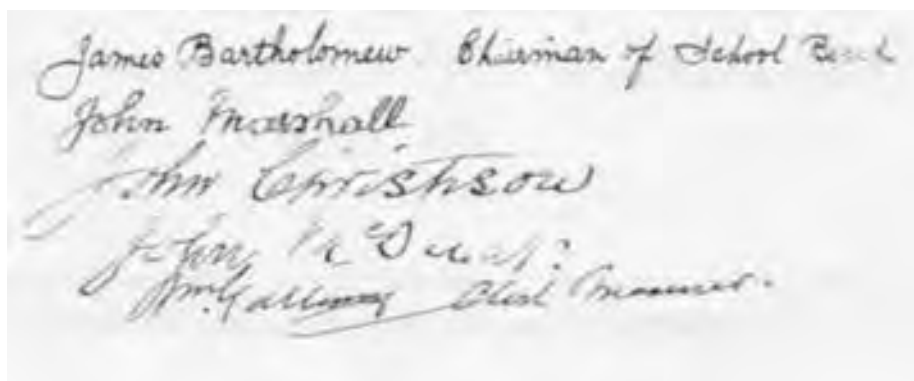 James Bartholomew Chairman of School Board
John Marshall
John Christison
John
Wm. Galloway Clerk